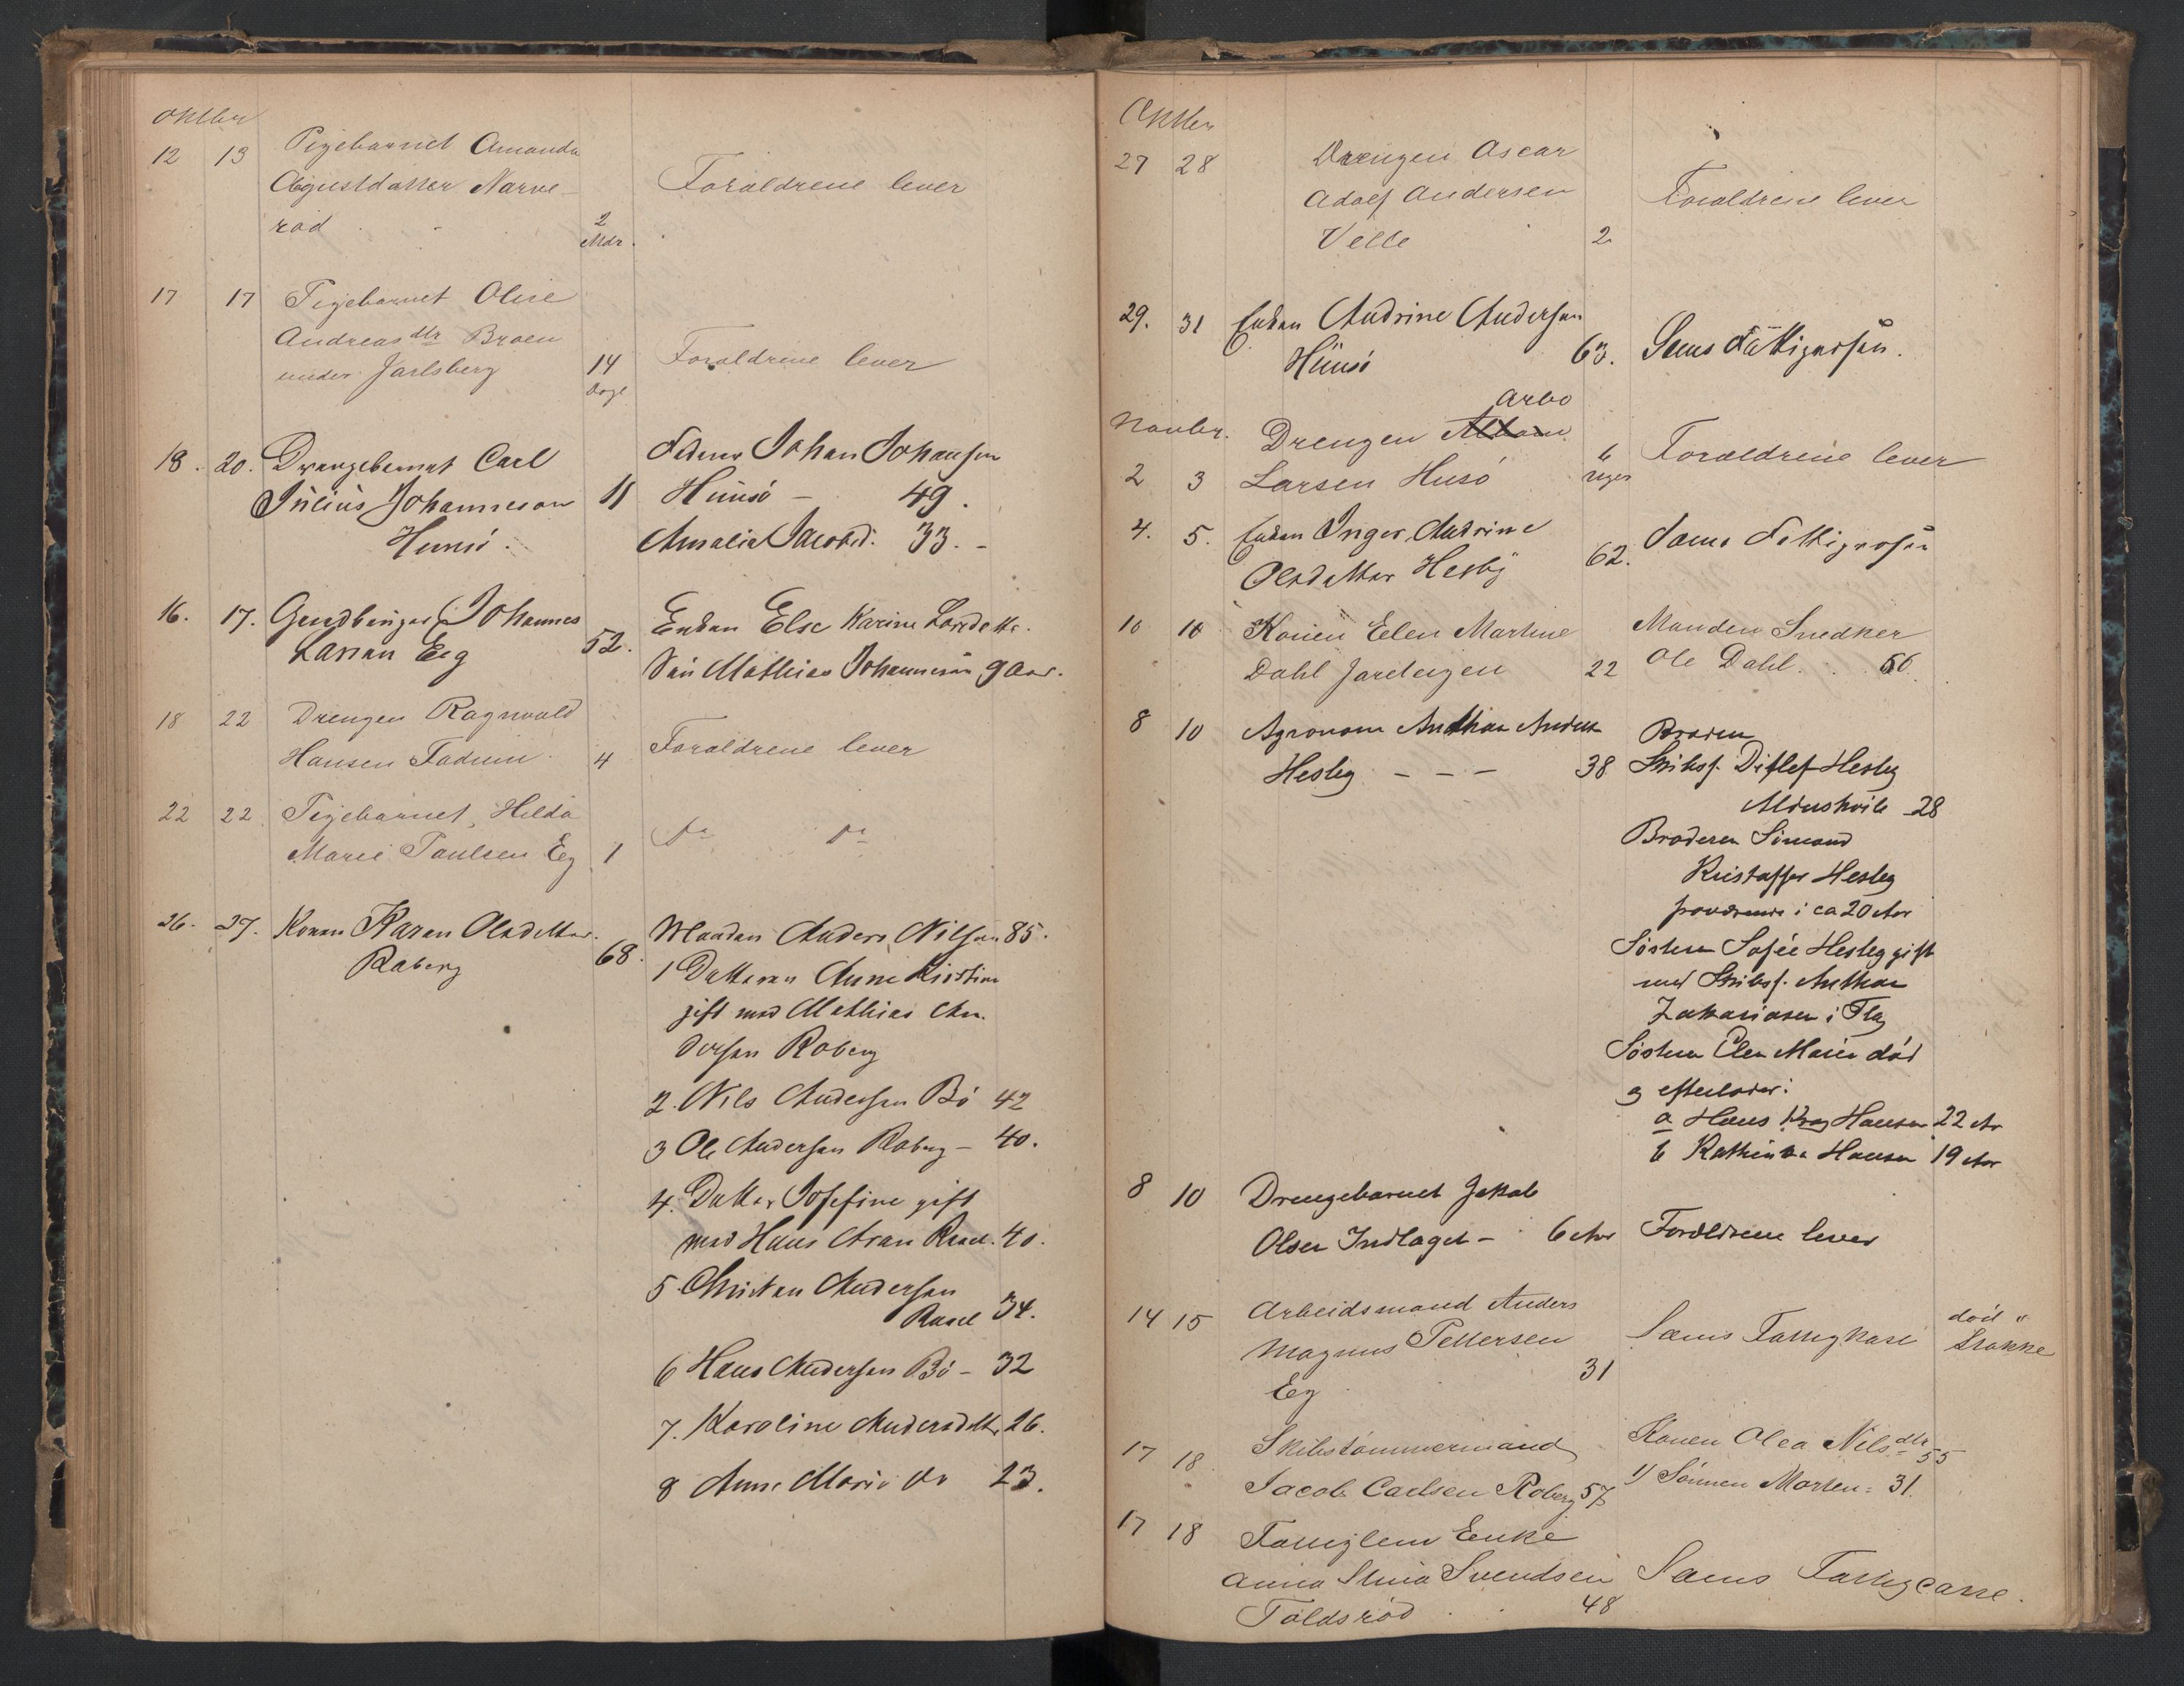 Oktbr
12 13 Pigebarnet Amanda
Agustdatter Narve-
röd 2 Mdr. Forældrene lever
17 17 Pigebarnet Olise
Andreasdtr Broen
under Jarlsberg 14 Dage Forældrene lever
18. 20. Drengebarnet Carl
Julius Johannesen 11
Hunsö.
Faderen Johan Johansen
Hunsö – 49.
Amalie Jacobsd. 33. –
16. 17. Johannes
Larsen Eeg 52.
Enken Else Karine Larsdattr.
Sön Mathias Johannesen 9 Aar.
18 22 Drengen Ragnvald
Hansen Fadum. 4 Forældrene lever
22 22 Pigebarnet, Hilda
Marie Paulsen Eeg 1 Do Do
26. 27. Konen Karen Olsdatter.
Raberg 68.
Manden Anders Nilsen 85.
1 Datteren Anne Kirstine
gift med Mathias An-
dersen Roberg
2. Nils Andersen Bö 42
3 Ole Andersen Roberg – 40.
4. Datter Josefine gift
med Hans Aran 40.
5. Christian Andersen
34.
6 Hans Andersen Bö – 32
7. Karoline Andersdtr 26.
8 Anne Marie Do 23.
Oktbr
27 28 Drengen Oscar
Adolf Andersen
Velle 2 Forældrene lever
29. 31 Enken Andrine Andersen
Hunsö 63. Sems Fattigvæsen.
Arbo
Novbr. Drengen
2 3 Larsen Husö 6 uger Forældrene lever
4. 5. Enken Inger Andrine
Olsdatter Hesby 62. Sems Fattigvæsen
10 10 Konen Elen Martine
Dahl Jareteigen 22
Manden Snedker
Ole Dahl. . . 56.
8 10 Agronom Anthon Andersen
Hesby – – – 38
Broren
Skibsf. Ditlef Hesby
28
Broderen Simond
Kristoffer Hesby
fraværende i ca 20 Aar
Søsteren Sofie Hesby gift
med Skibsf. Anthon
Zakariasen i Flag
Søsteren Elen Marie död
og efterlader:
a Hans Krag Hansen 22 Aar
b Kathinka Hansen 19 Aar
8 10 Drengebarnet Jakob
Olsen Indlaget – 6 Aar Forældrene lever
14 15 Arbeidsmand Anders
Magnus Pettersen
Eeg 31 Sems Fattigkasse död i Stokke
17 18 Skibstömmermand
Jacob Carlsen Roberg 57
Konen Olea Nilsdtr 55
1/ Sönnen Morten = 31.
17 18 Fattiglem Enke
Anna Stina Svendsen
Toldsröd 48 Sems Fattigcasse.